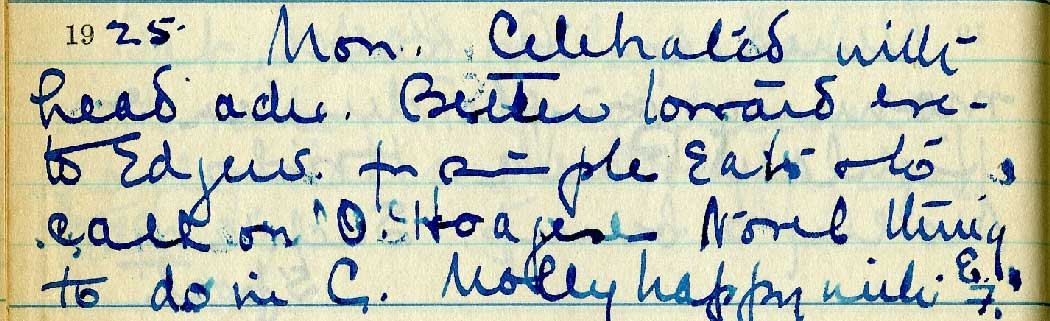 1925. Mon. Celebrated with
head ache. Better toward eve-
to Edgew. for simple Eats & to
call on O. Hoagers Novel thing
to do in C. Molly happy with E.